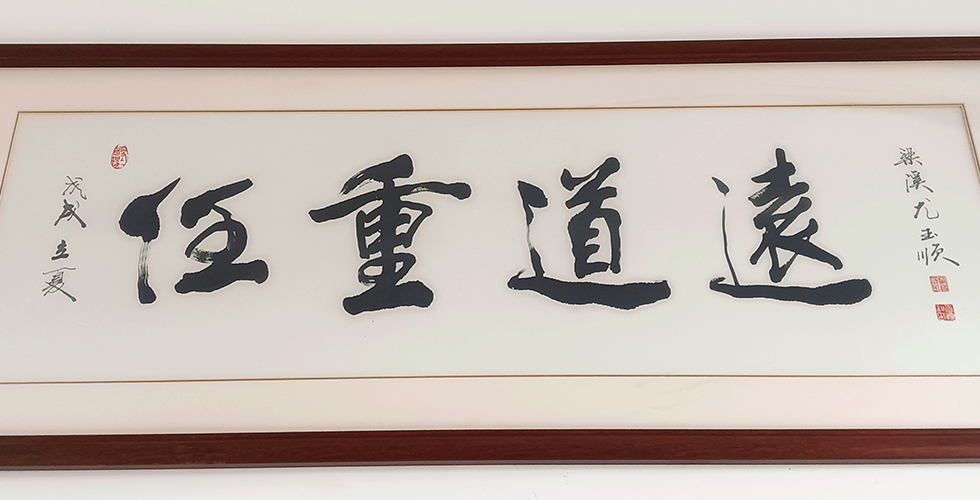 戊戌立夏
任重道遠
梁溪尤玉順